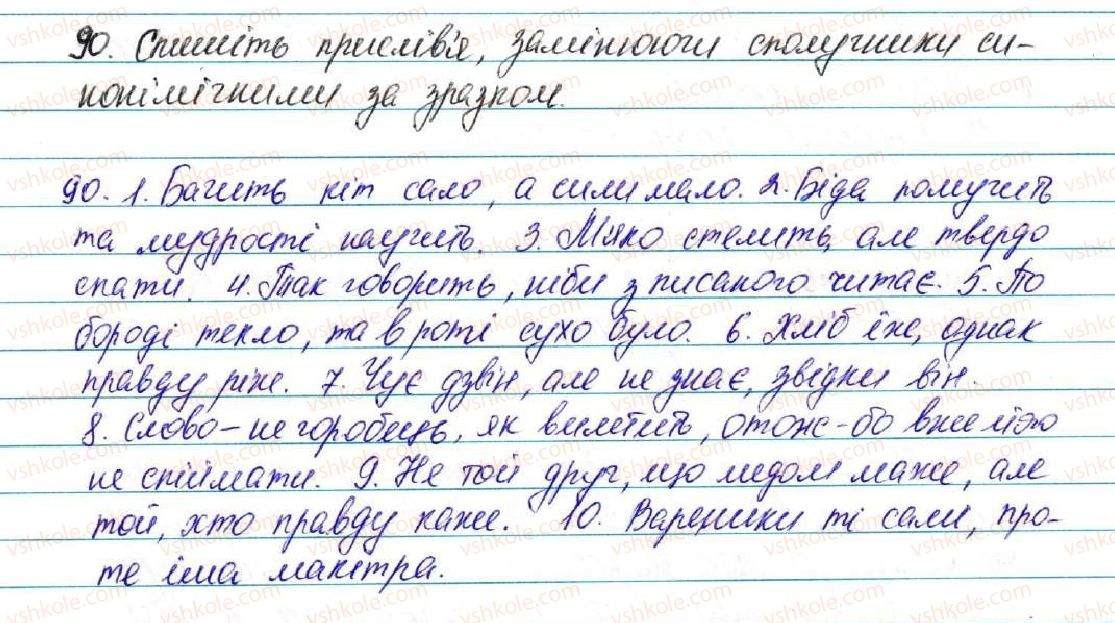 90. Спишіть прислів'я, замінюючи сполучники си-
нонімічними за зразком.
90. 1. Бачить кіт сало, а сили мало. 2. Біда помучить
та мудрості научить. 3. М'яко стелить, але твердо
спати. 4. Так говорить, ніби з писаного читає. 5. По
бороді текло, та в роті сухо було. 6. Хліб їж, однак
правду ріж. 7. Чує дзвін, але не знає, звідки він.
8. Слово – не горобець, як вилетить, отож-бо вже його
не спіймати. 9. Не той друг, що медом маже, але
той, хто правду каже. 10. Вареники ті самі, про-
те інша макітра.